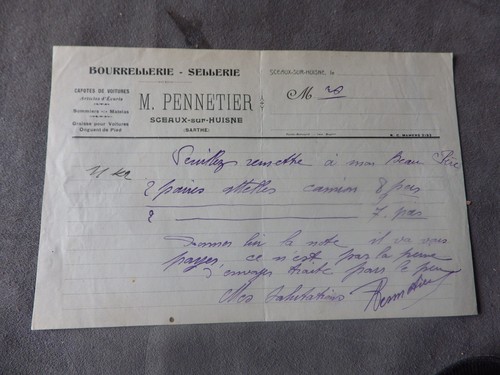 BOURRELLERIE - SELLERIE
CAPOTES DE VOITURES
Articles d'Écurie
Sommiers et Matelas
Graisse pour Voitures
Onguent de Pied
M. PENNETIER
SCEAUX-sur-HUISNE
(SARTHE)
SCEAUX-SUR-HUISNE, le
M
Veuillez remettre à mon Beau Père
2 paires attelles camion 8 pces
2 7 pces
Donnez lui la note il va vous
payer, ce n'est pas la peine
d'envoyer traite pour le peu
Mes Salutations
Pennetier